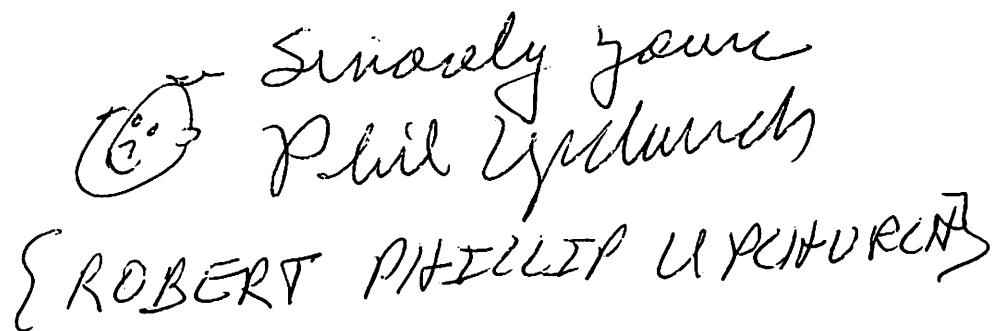 Sincerely yours
Phil Upchurch
{ROBERT PHILLIP UPCHURCH}